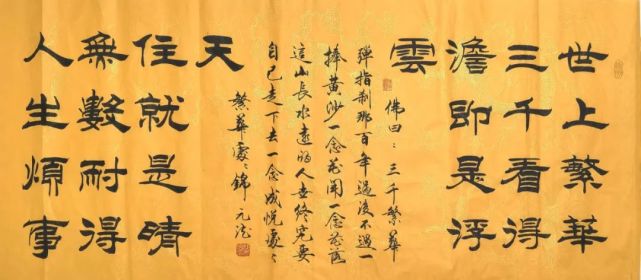 世上繁華
三千看得
澹即是浮
雲
人生煩事
無數耐得
住就是晴
天
佛曰：三千繁華
彈指刹那百年過後不過一
捧黃沙一念花開一念花落
這山長水遠的人世終究要
自己走下去一念成悅處〻
繁華處〻錦